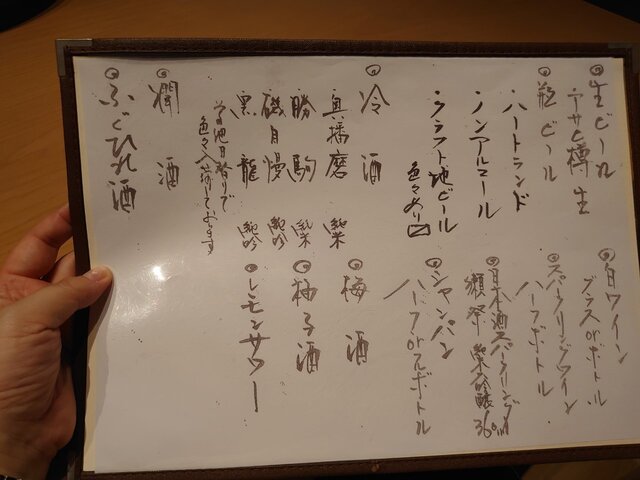 ◎生ビール
ヱビス樽生
◎瓶ビール
ハートランド
ノンアルコール
クラフト地ビール
色々あり
◎冷酒
奥播磨 純米
勝駒 純米
磯自慢 純吟
黒龍 純吟
その他日替りで
色々入荷しております
◎燗酒
◎ふぐひれ酒
◎白ワイン
グラスorボトル
◎スパークリングワイン
ハーフボトル
◎日本酒スパークリング
獺祭 純米吟醸 360ml
◎シャンパン
ハーフorフルボトル
◎梅酒
◎柚子酒
◎レモンサワー